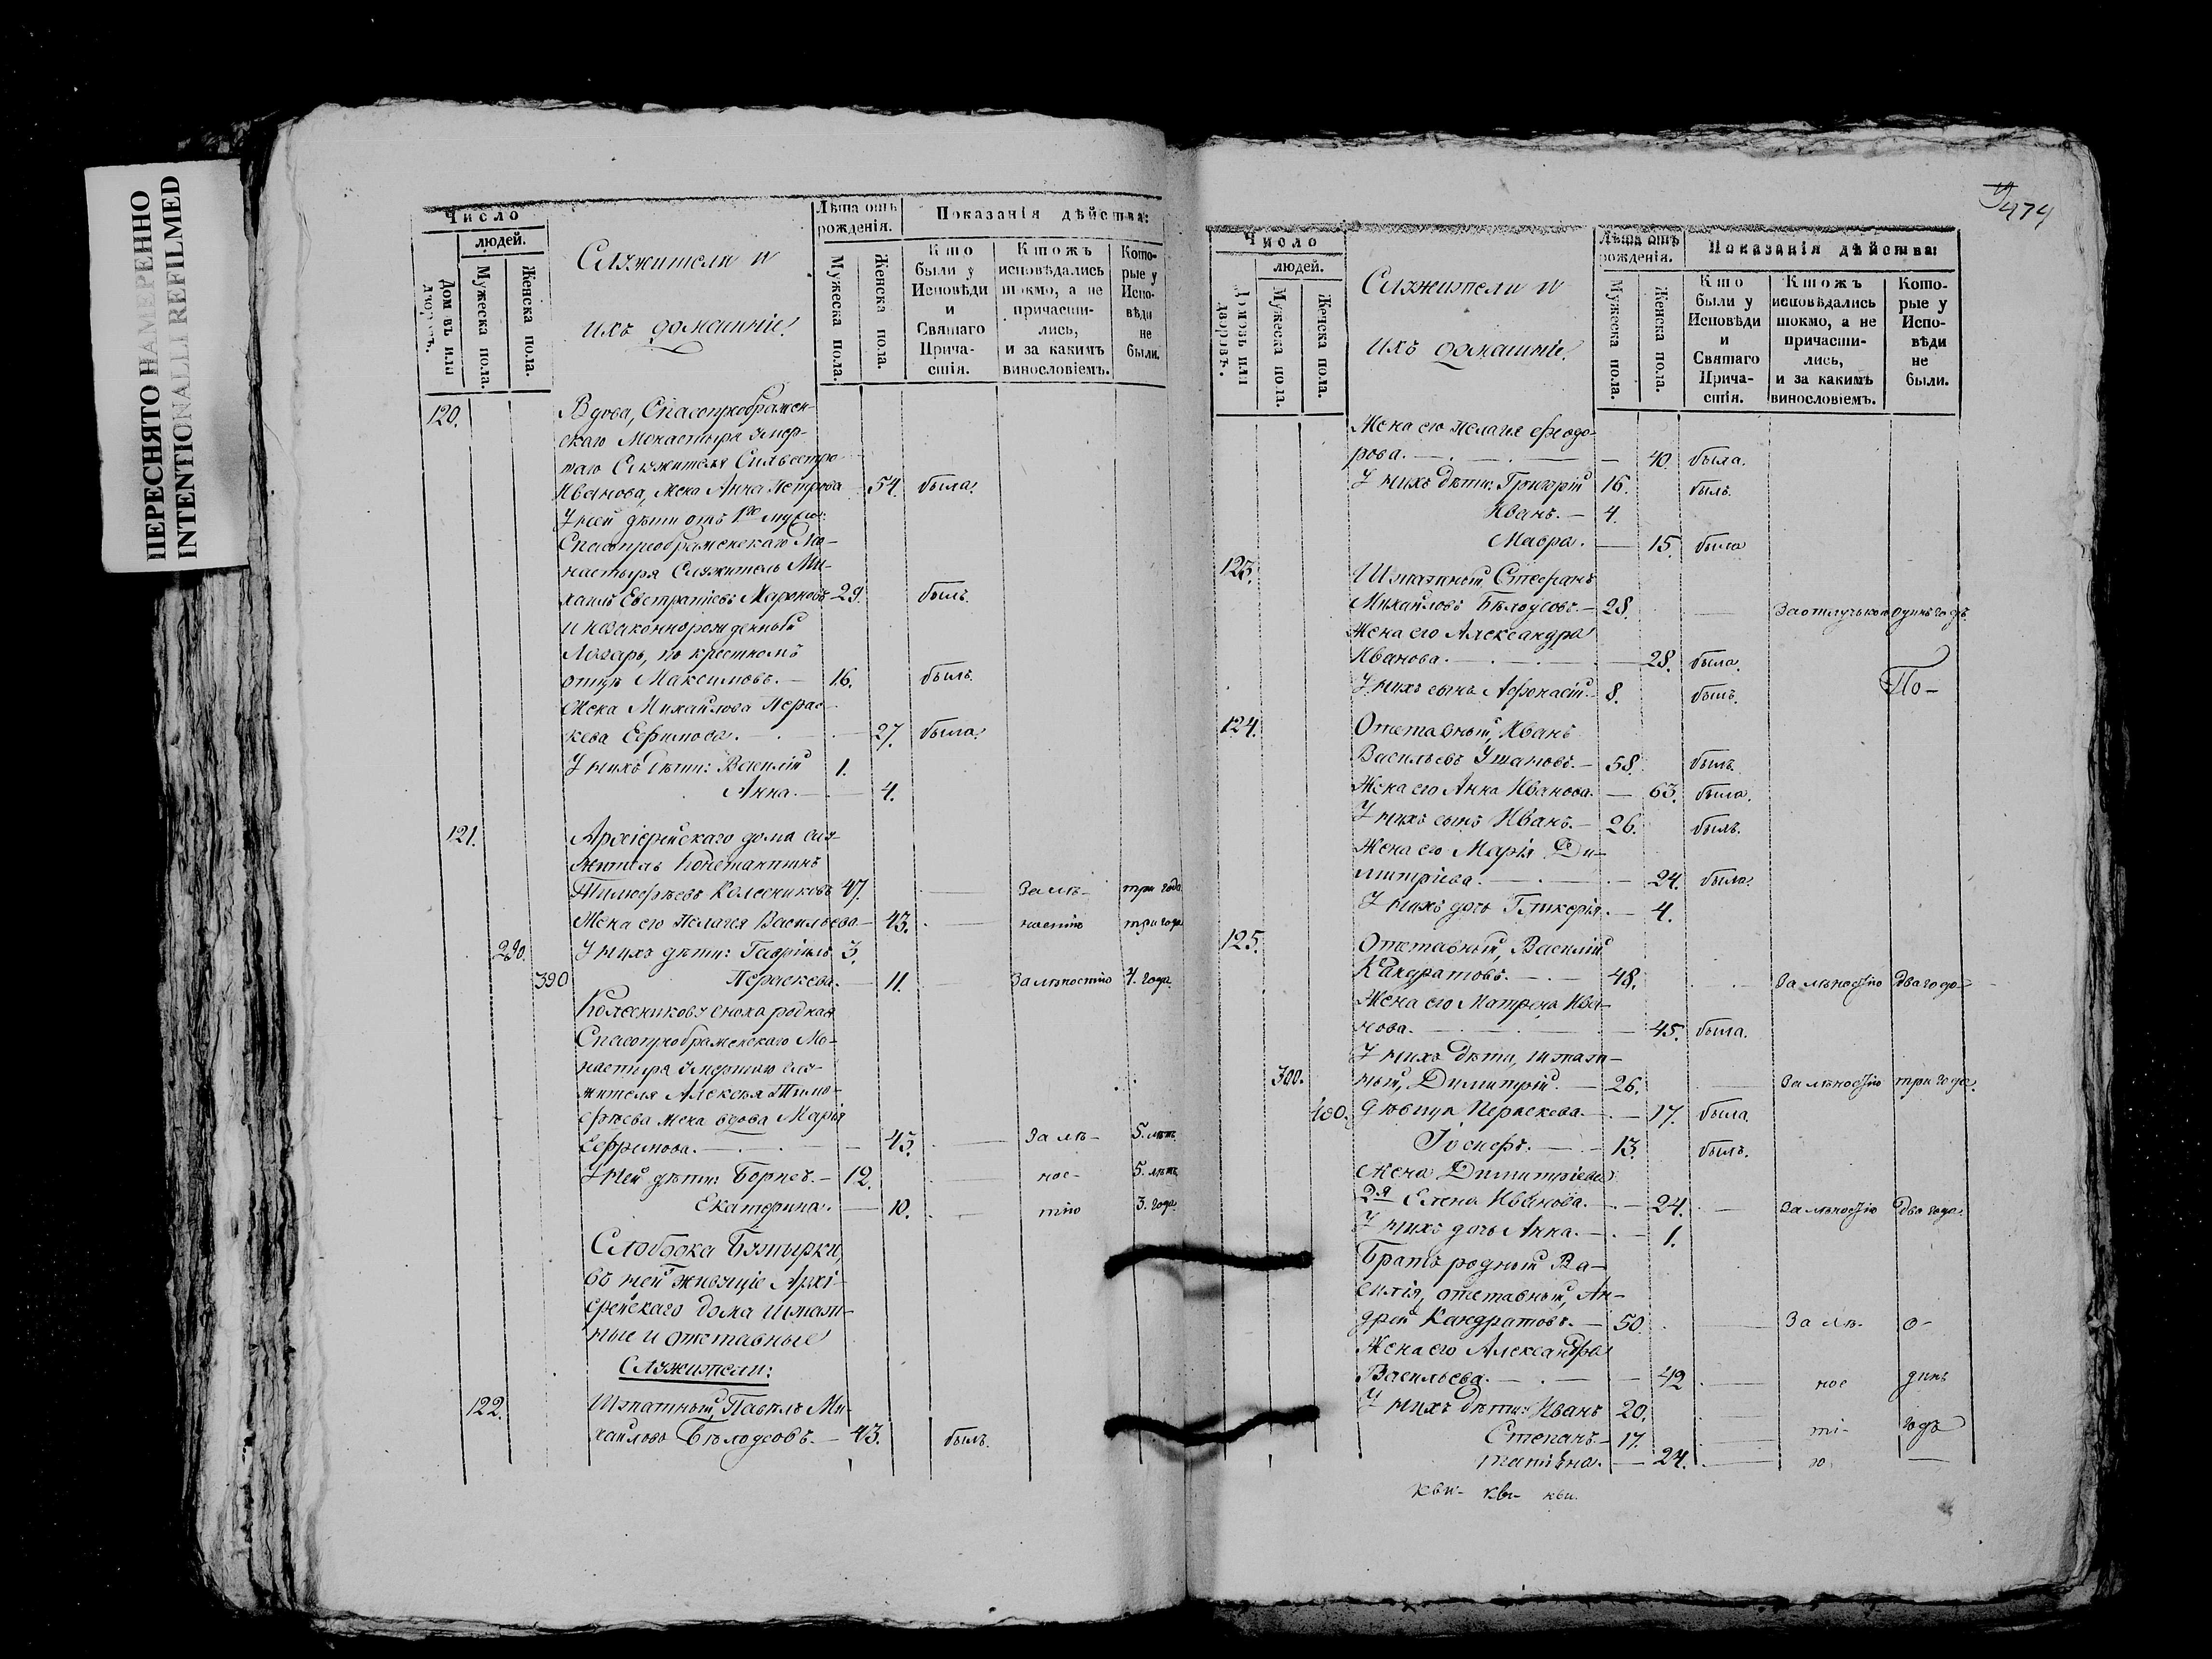 ПЕРЕСНЯТО НАМЕРЕННО
INTENTIONALLI REFILMED
Число
людей.
Дом въ или дворовъ.
Мужеска пола.
Женска пола.
Служители и
ихъ домашніе!
Лѣта отъ рожденія.
Мужеска пола.
Женска пола.
Показанія дѣйства:
Кто были у Исповѣди и Святаго Причастія.
Ктожъ исповѣдались токмо, а не причастились, и за какимъ винословіемъ.
Которые у Исповѣди не были.
120. Вдова, Спасопреображен-
скаго Монастыря умер-
шаго Служителя Сильвестра
Иванова, жена Анна Петрова 54. была.
У ней дѣти отъ 1го мужа:
Спасопреображенскаго Мо-
настыря Служитель Ми-
хаилъ Евстратіевъ 29. былъ.
и незаконнорожденный
Лазарь, по крестномъ
отцѣ Максимовъ. — 16. былъ.
Жена Михайлова Парас-
кева Ефимова. — 27. была.
У нихъ дѣти: Василій 1.
Анна. — 4.
121. Архіерейскаго дома слу-
житель Константинъ
Тимофѣевъ Колесниковъ 47. — За лѣ- три года
Жена его Пелагея Васильева — 43. — ностію три года
290. У нихъ дѣти: Гавріилъ 3.
390 Параскева. — 11. — За лѣностію 4. года.
Колесникову сноха родная
Спасопреображенскаго Мо-
настыря умершаго слу-
жителя Алексѣя Тимо-
фѣева жена вдова Марія
Ефремова. — 45. — За лѣ- 5. лѣтъ
У ней дѣти: Борисъ. — 12. — нос- 5. лѣтъ
Екатерина. — 10. — тію 3. года.
Слободка Бутырки,
въ ней живущіе Архі-
ерейскаго дома штат-
ные и отставные
Служители:
122. Штатный, Павелъ Ми-
хайловъ Бѣлоусовъ. — 43. былъ.
474
Число
людей.
Домовъ или дворовъ.
Мужеска пола.
Женска пола.
Служители и
ихъ домашніе.
Лѣта отъ рожденія.
Мужеска пола.
Женска пола.
Показанія дѣйства:
Кто были у Исповѣди и Святаго Причастія.
Ктожъ исповѣдались токмо, а не причастились, и за какимъ винословіемъ.
Которые у Исповѣди не были.
Жена его Пелагея Феодо-
рова. — 40. была.
У нихъ дѣти: Григорій 16. былъ.
Иванъ. — 4.
Мавра. — 15. была
123. Штатный, Стефанъ
Михайловъ Бѣлоусовъ. — 28. — За отлучкою одинъ годъ
Жена его Александра
Иванова. — 28. была.
У нихъ сынъ Афонасій. 8. былъ. По-
124. Отставный, Иванъ
Васильевъ Ушаковъ. — 58. былъ.
Жена его Анна Иванова. — 63. была.
У нихъ сынъ Иванъ. — 26. былъ.
Жена его Марія Ди-
митріева. — 24. была.
У нихъ дочь Гликерія. — 4.
125. Отставный, Василій
Кандратовъ. — 48. — За лѣностію два года
Жена его Матрена Ива-
нова. — 45. была.
У нихъ дѣти, штат-
300. ный, Димитрій. — 26. — За лѣностію три года.
400. дѣвица Параскева. — 17. была.
Іосифъ. — 13. былъ.
Жена Димитріева
2я Елена Иванова. — 24. — За лѣностію два года.
У нихъ дочь Анна. — 1.
Братъ родный Ва-
силія, отставный, Ан-
дрей Кандратовъ. — 50. — За лѣ- о-
Жена его Александра
Васильева. — 42 — нос динъ
У нихъ дѣти: Иванъ 20. — ті- годъ
Степанъ. — 17. —
Татіяна. — 24. — ю —
кви- кви- кви.